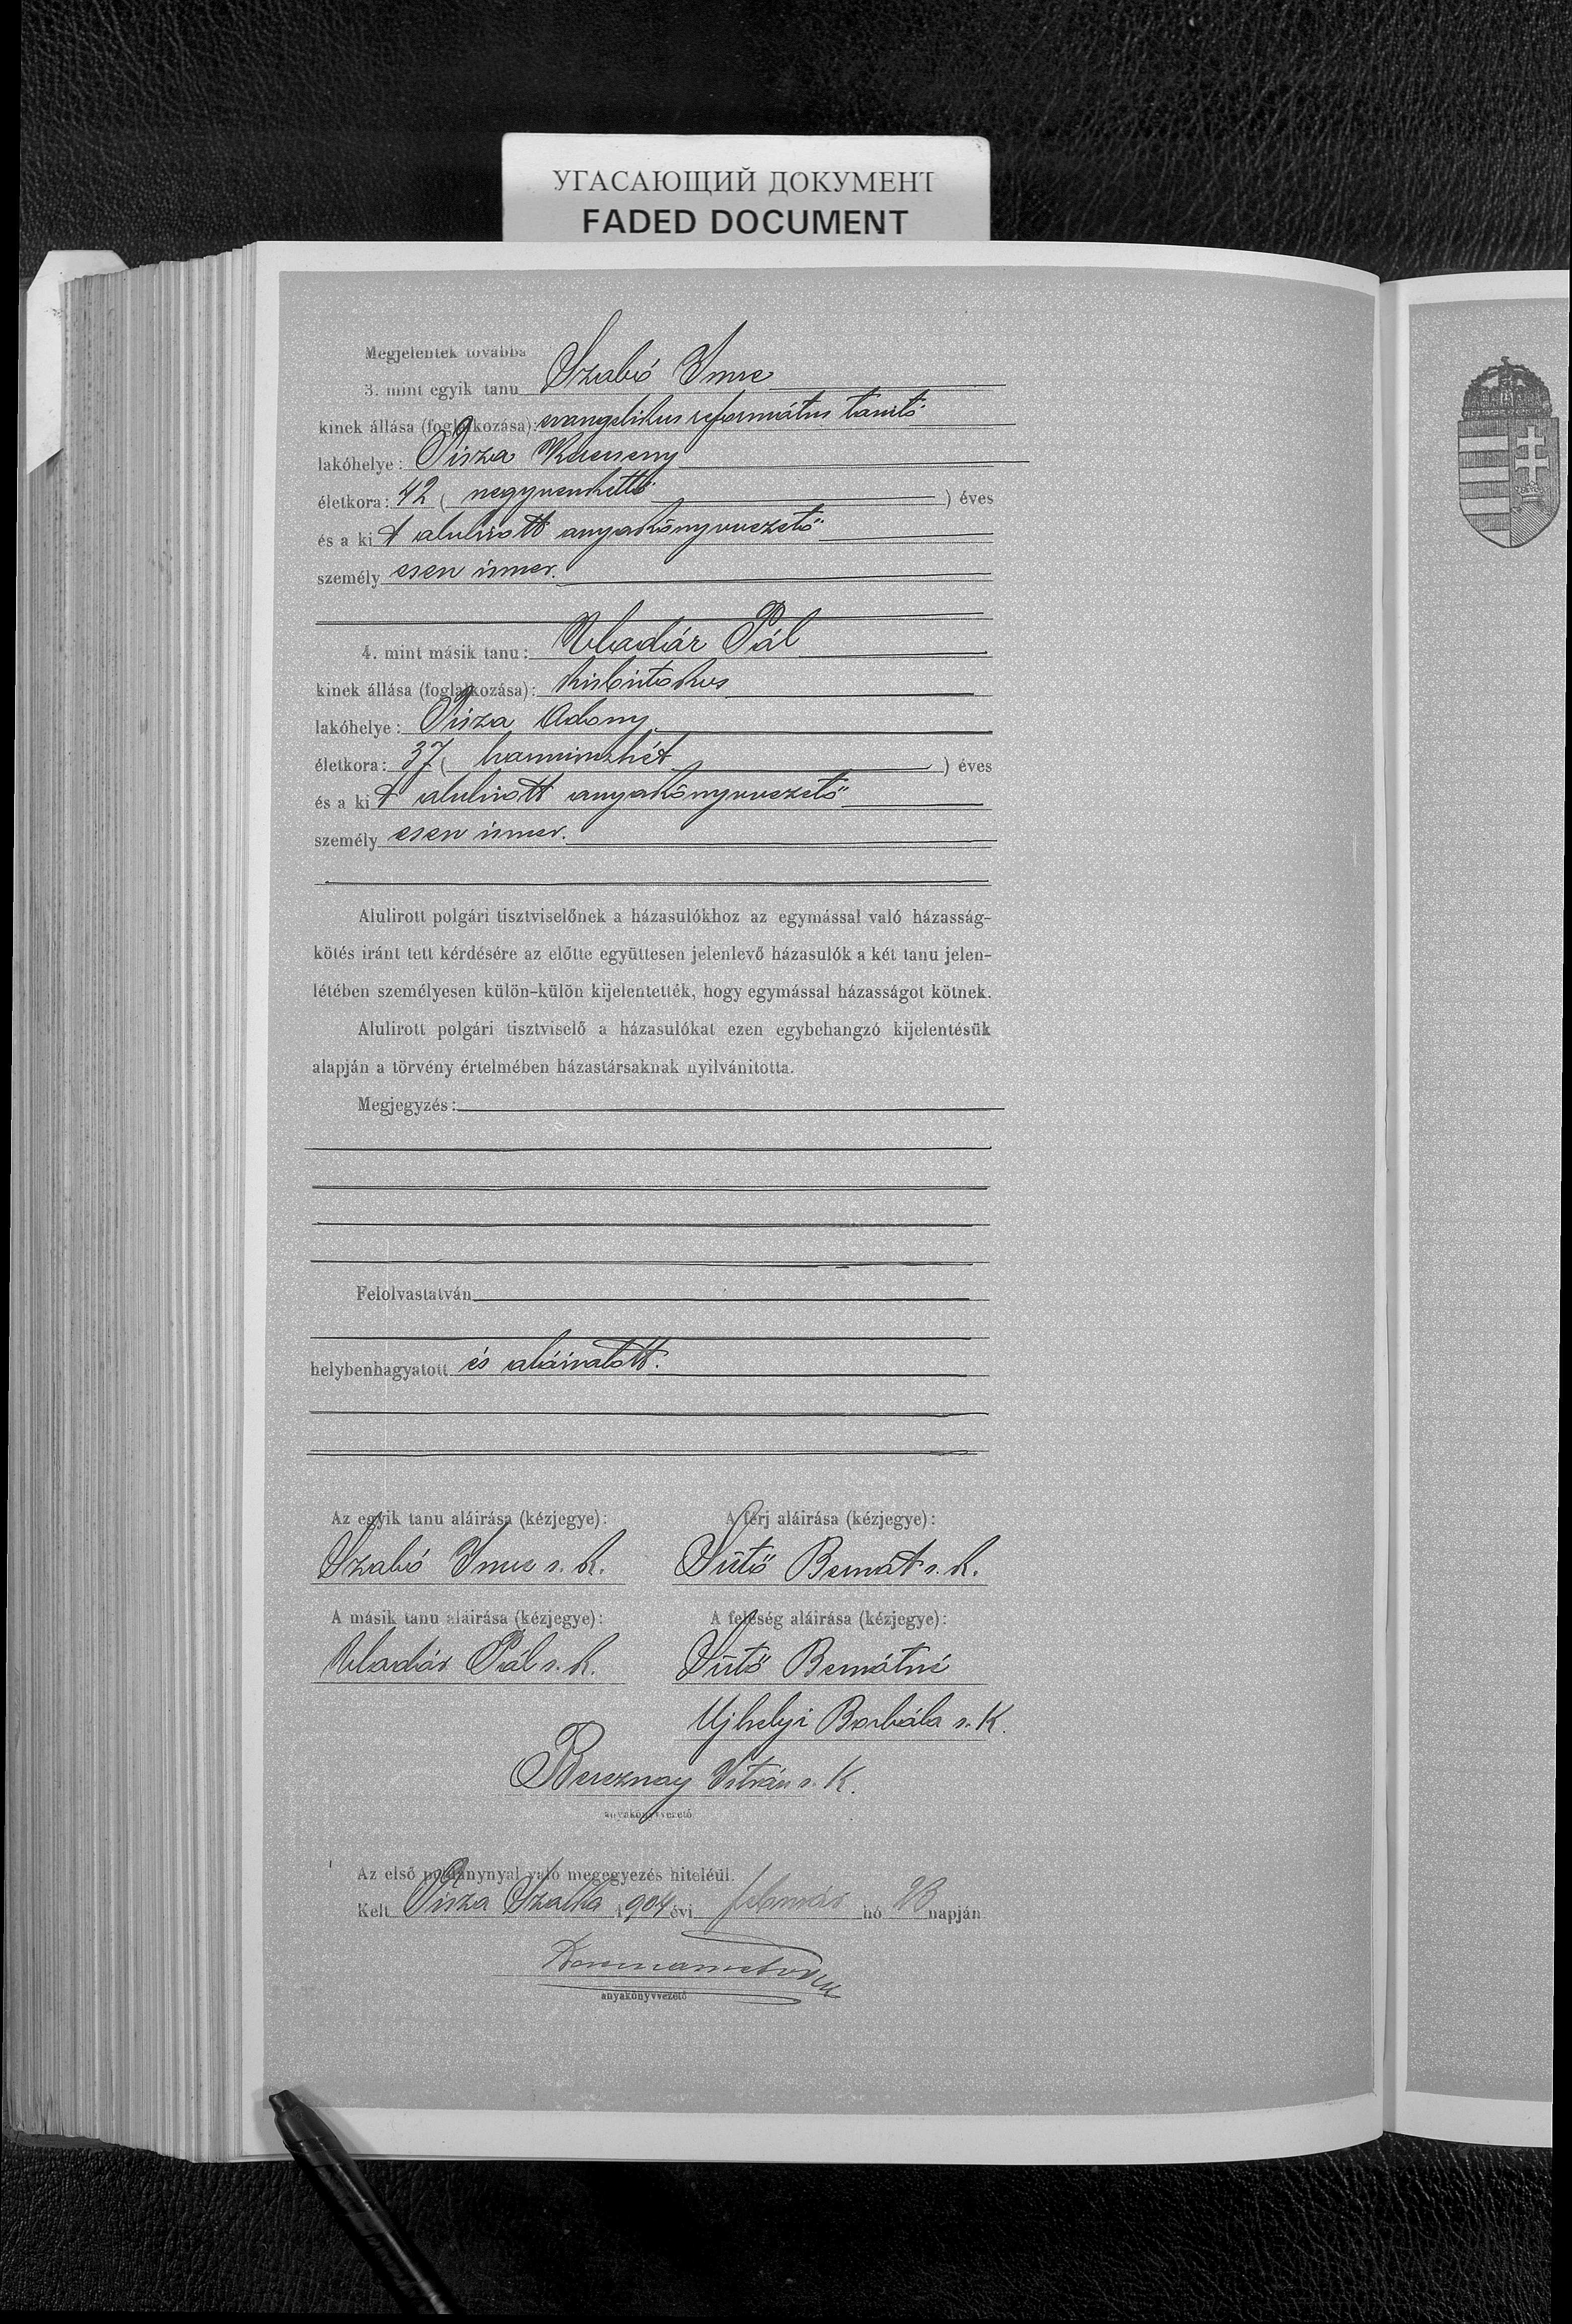 УГАСАЮЩИЙ ДОКУМЕНТ
FADED DOCUMENT
Megjelentek továbbá
3. mint egyik tanu Szabó Imre
kinek állása (foglalkozása): evangelikus református tanitó
lakóhelye: Tisza Kerecseny
életkora: 42 ( negyvenkettő ) éves
és a kit alulirott anyakönyvvezető
személyesen ismer.
4. mint másik tanu: Uladár Pál
kinek állása (foglalkozása): kisbirtokos
lakóhelye: Tisza Adony
életkora: 37 ( harminczhét ) éves
és a kit alulirott anyakönyvvezető
személyesen ismer.
Alulirott polgári tisztviselőnek a házasulókhoz az egymással való házasság-
kötés iránt tett kérdésére az előtte együttesen jelenlevő házasulók a két tanu jelen-
létében személyesen külön-külön kijelentették, hogy egymással házasságot kötnek.
Alulirott polgári tisztviselő a házasulókat ezen egybehangzó kijelentésük
alapján a törvény értelmében házastársaknak nyilvánitotta.
Megjegyzés:
Felolvastatván
helybenhagyatott és aláiratott.
Az egyik tanu aláirása (kézjegye): A férj aláirása (kézjegye):
Szabó Imre s. k. Sütő Bernát s. k.
A másik tanu aláirása (kézjegye): A feleség aláirása (kézjegye):
Uladár Pál s. k. Sütő Bernátné
Ujhelyi Borbála s. k.
Bereznay István s. k.
anyakönyvvezető
Az első példánynyal való megegyezés hiteléül.
Kelt Tisza Szalka 1904 évi február hó 23 napján
anyakönyvvezető